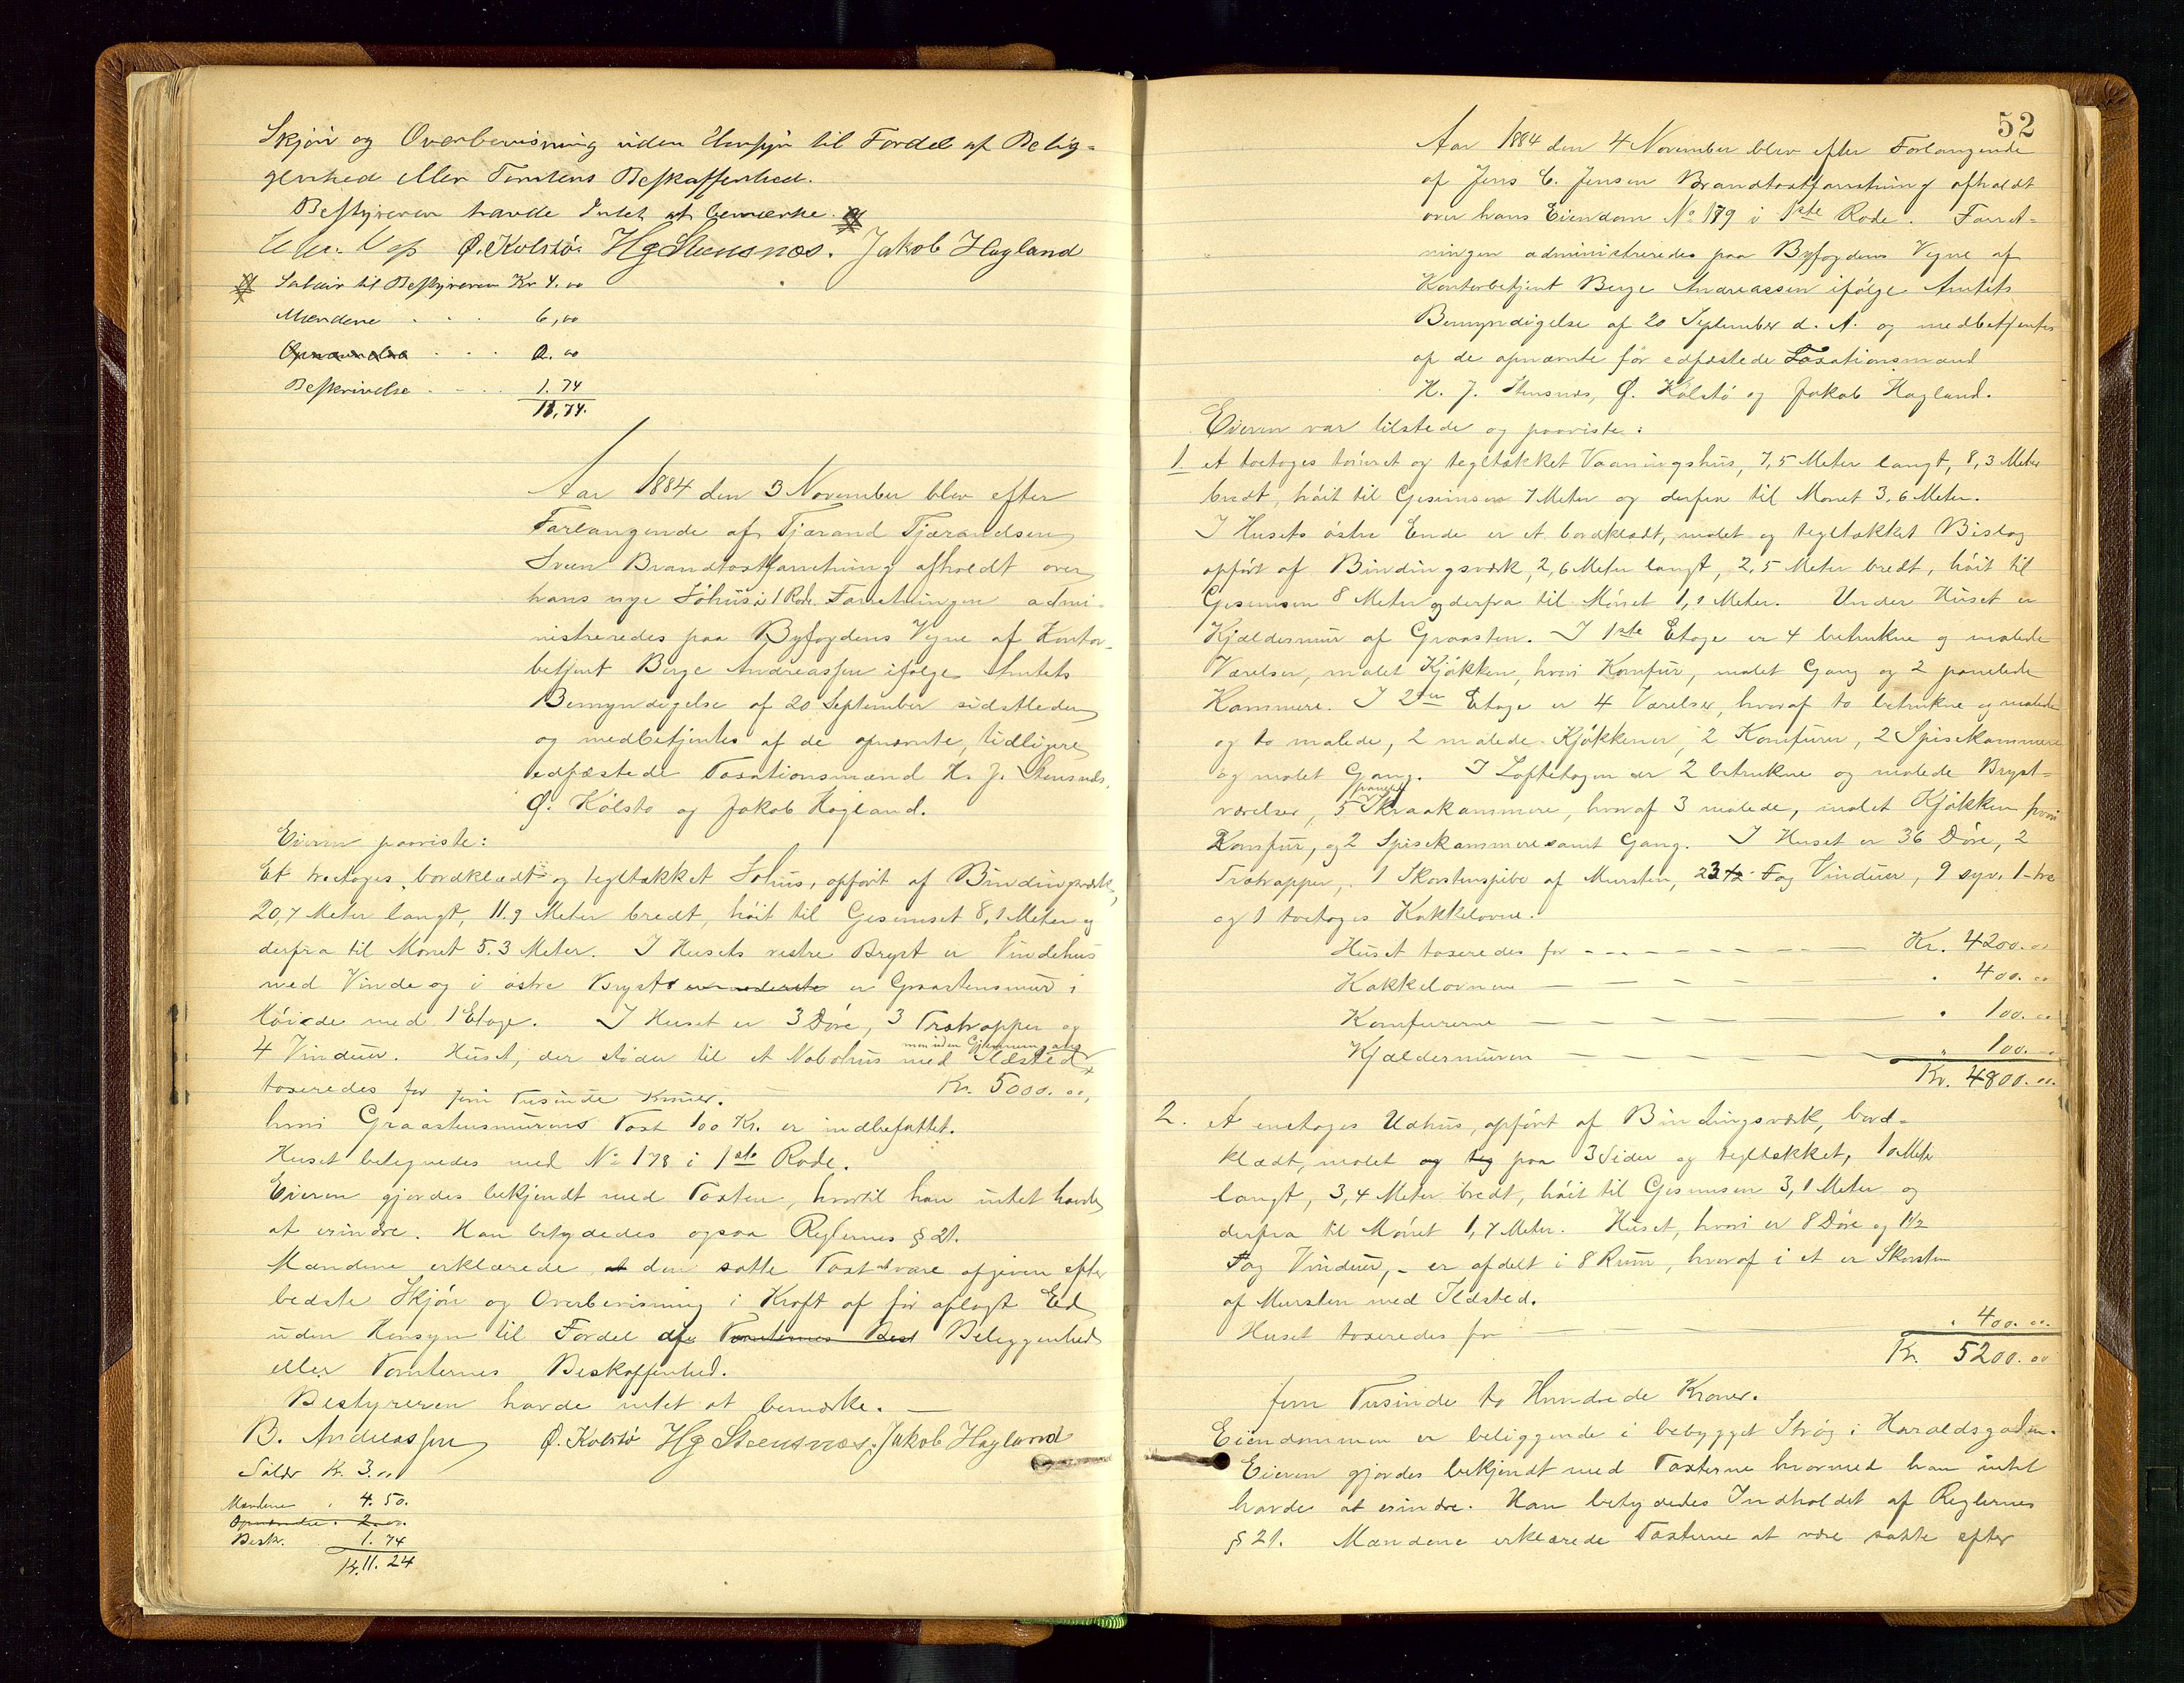 Skjøn og Overbevisning uden Hensyn til Fordel af Belig-
genhed eller Tomtens Beskaffenhed.
Bestyreren havde Intet at bemærke.
Ø. Kolstø. Hg Steensnæs. Jakob Hagland
Salair til Bestyreren Kr 4.00
Mændene 6,00
Opnævnelse 2.00
Beskrivelse 1.74
11,74.
Aar 1884 den 3 November blev efter
Forlangende af Tjærand Tjærandsen
Sveen Brandtaxtforretning afholdt over
hans nye Søhus i 1 Rode. Forretningen admi-
nistreredes paa Byfogdens Vegne af Kontor-
betjent Berge Andreassen ifølge Amtets
Bemyndigelse af 20 September sidstleden
og medbetjentes af de opnævnte, tidligere
edfæstede Taxationsmænd H. J. Stensnæs,
Ø. Kolstø og Jakob Hagland.
Eieren paaviste:
Et toetages bordklædt og tegltækket Søhus, opført af Bindingsværk,
20,7 Meter langt, 11.9 Meter bredt, høit til Gesimset 8,1 Meter og
derfra til Mønet 5.3 Meter. I Husets vestre Bryst er Vindehus
med Vinde og i østre Bryst er Graastensmur i
Høide med 1 Etage. I Huset er 3 Døre, 3 Trætrapper og
4 Vinduer. Huset, der støder til et Nabohus men uden Gjennemgang med Ildsted
taxeredes for fem Tusinde Kroner. Kr. 5000.00,
hvori Graastensmurens Taxt 100 Kr. er indbefattet.
Huset betegnedes med No 178 i 1ste Rode.
Eieren gjordes bekjendt med Taxten, hvortil han intet havde
at erindre. Han betydedes ogsaa Reglernes § 21.
Mændene erklærede den satte Taxt at være afgiven efter
bedste Skjøn og Overbevisning i Kraft af før aflagt Ed
uden Hensyn til Fordel af Tomternes Besk Beliggenhed
eller Tomternes Beskaffenhed.
Bestyreren havde intet at bemærke. —
B. Andreassen Ø. Kolstø Hg Steensnæs. Jakob Hagland
Salær Kr. 3.00
Mændene 4.50.
Opnævnelse 2.00.
Besk. 1.74
Kr. 11.24
52
Aar 1884 den 4 November blev efter Forlangende
af Jens C. Jensen Brandtaxtforretning afholdt
over hans Eiendom No 179 i 1ste Rode. Forret-
ningen administreredes paa Byfogdens Vegne af
Kontorbetjent Berge Andreassen ifølge Amtets
Bemyndigelse af 20 September d. A. og medbetjentes
af de opnævnte før edfæstede Taxationsmænd
H. J. Stensnæs, Ø. Kolstø og Jakob Hagland.
Eieren var tilstede og paaviste:
1. et toetages tømret og tegltækket Vaaningshus, 7,5 Meter langt, 8,3 Meter
bredt, høit til Gesimsen 7 Meter og derfra til Mønet 3,6 Meter.
I Husets østre Ende er et bordklædt, malet og tegltækket Bislag
opført af Bindingsværk, 2,6 Meter langt, 2,5 Meter bredt, høit til
Gesimsen 8 Meter og derfra til Mønet 1,1 Meter. Under Huset er
Kjældermur af Graasten. I 1ste Etage er 4 betrukne og malede
Værelser, malet Kjøkken, hvori Komfur, malet Gang og 2 panelede
Kammere. I 2den Etage er 4 Værelser, hvoraf to betrukne og malede
og to malede, 2 malede Kjøkkener, 2 Komfurer, 2 Spisekammere
og malet Gang. I Loftetagen er 2 betrukne og malede Bryst-
værelser, 5 panelede Skraakammere, hvoraf 3 malede, malet Kjøkken hvori
Komfur, og 2 Spisekammere samt Gang. I Huset er 36 Døre, 2
Trætrapper, 1 Skorstenspibe af Mursten, 23 ½ Fag Vinduer, 9 syv, 1 tre
og 1 toetages Kakkelovne.
Huset taxeredes for Kr. 4200.00
Kakkelovnene " 400.00
Komfurerne " 100.00
Kjældermuren " 100.
Kr. 4800.00.
2. et enetages Udhus, opført af Bindingsværk, bord-
klædt, malet og teg paa 3 Sider og tegltækket, 10 Meter
langt, 3,4 Meter bredt, høit til Gesimsen 3,1 Meter og
derfra til Mønet 1,7 Meter. Huset, hvori er 8 Døre og 1½
Fag Vinduer, — er afdelt i 8 Rum, hvoraf i et er Skorsten
af Mursten med Ildsted.
Huset taxeredes for " 400.00.
Kr. 5200.00
fem Tusinde to Hundrede Kroner.
Eiendommen er beliggende i bebygget Strøg i Haraldsgaden.
Eieren gjordes bekjendt med Taxterne hvormed han intet
havde at erindre. Han betydedes Indholdet af Reglernes
§ 21. Mændene erklærede Taxterne at være satte efter